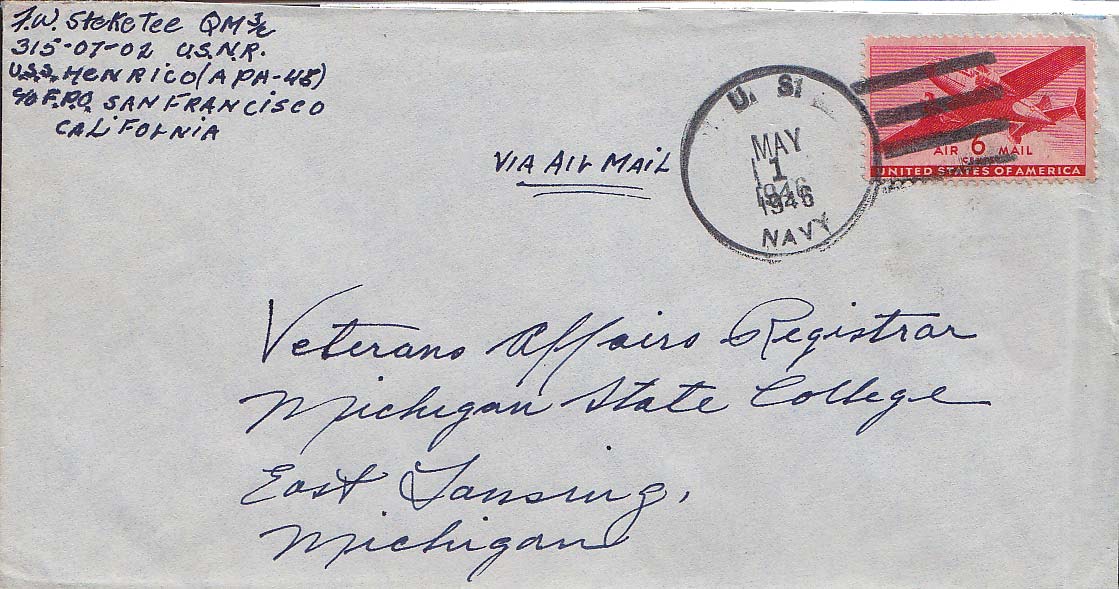 F.W. Steketee QM 3/c
315-07-02 U.S.N.R.
U.S.S. HENRICO (APA-45)
c/o F.P.O. SAN FRANCISCO
CALIFORNIA
VIA AIR MAIL
U. S.
MAY
1
1946
NAVY
AIR 6¢ MAIL
UNITED STATES OF AMERICA
Veterans Affairs Registrar
Michigan State College
East Lansing,
Michigan